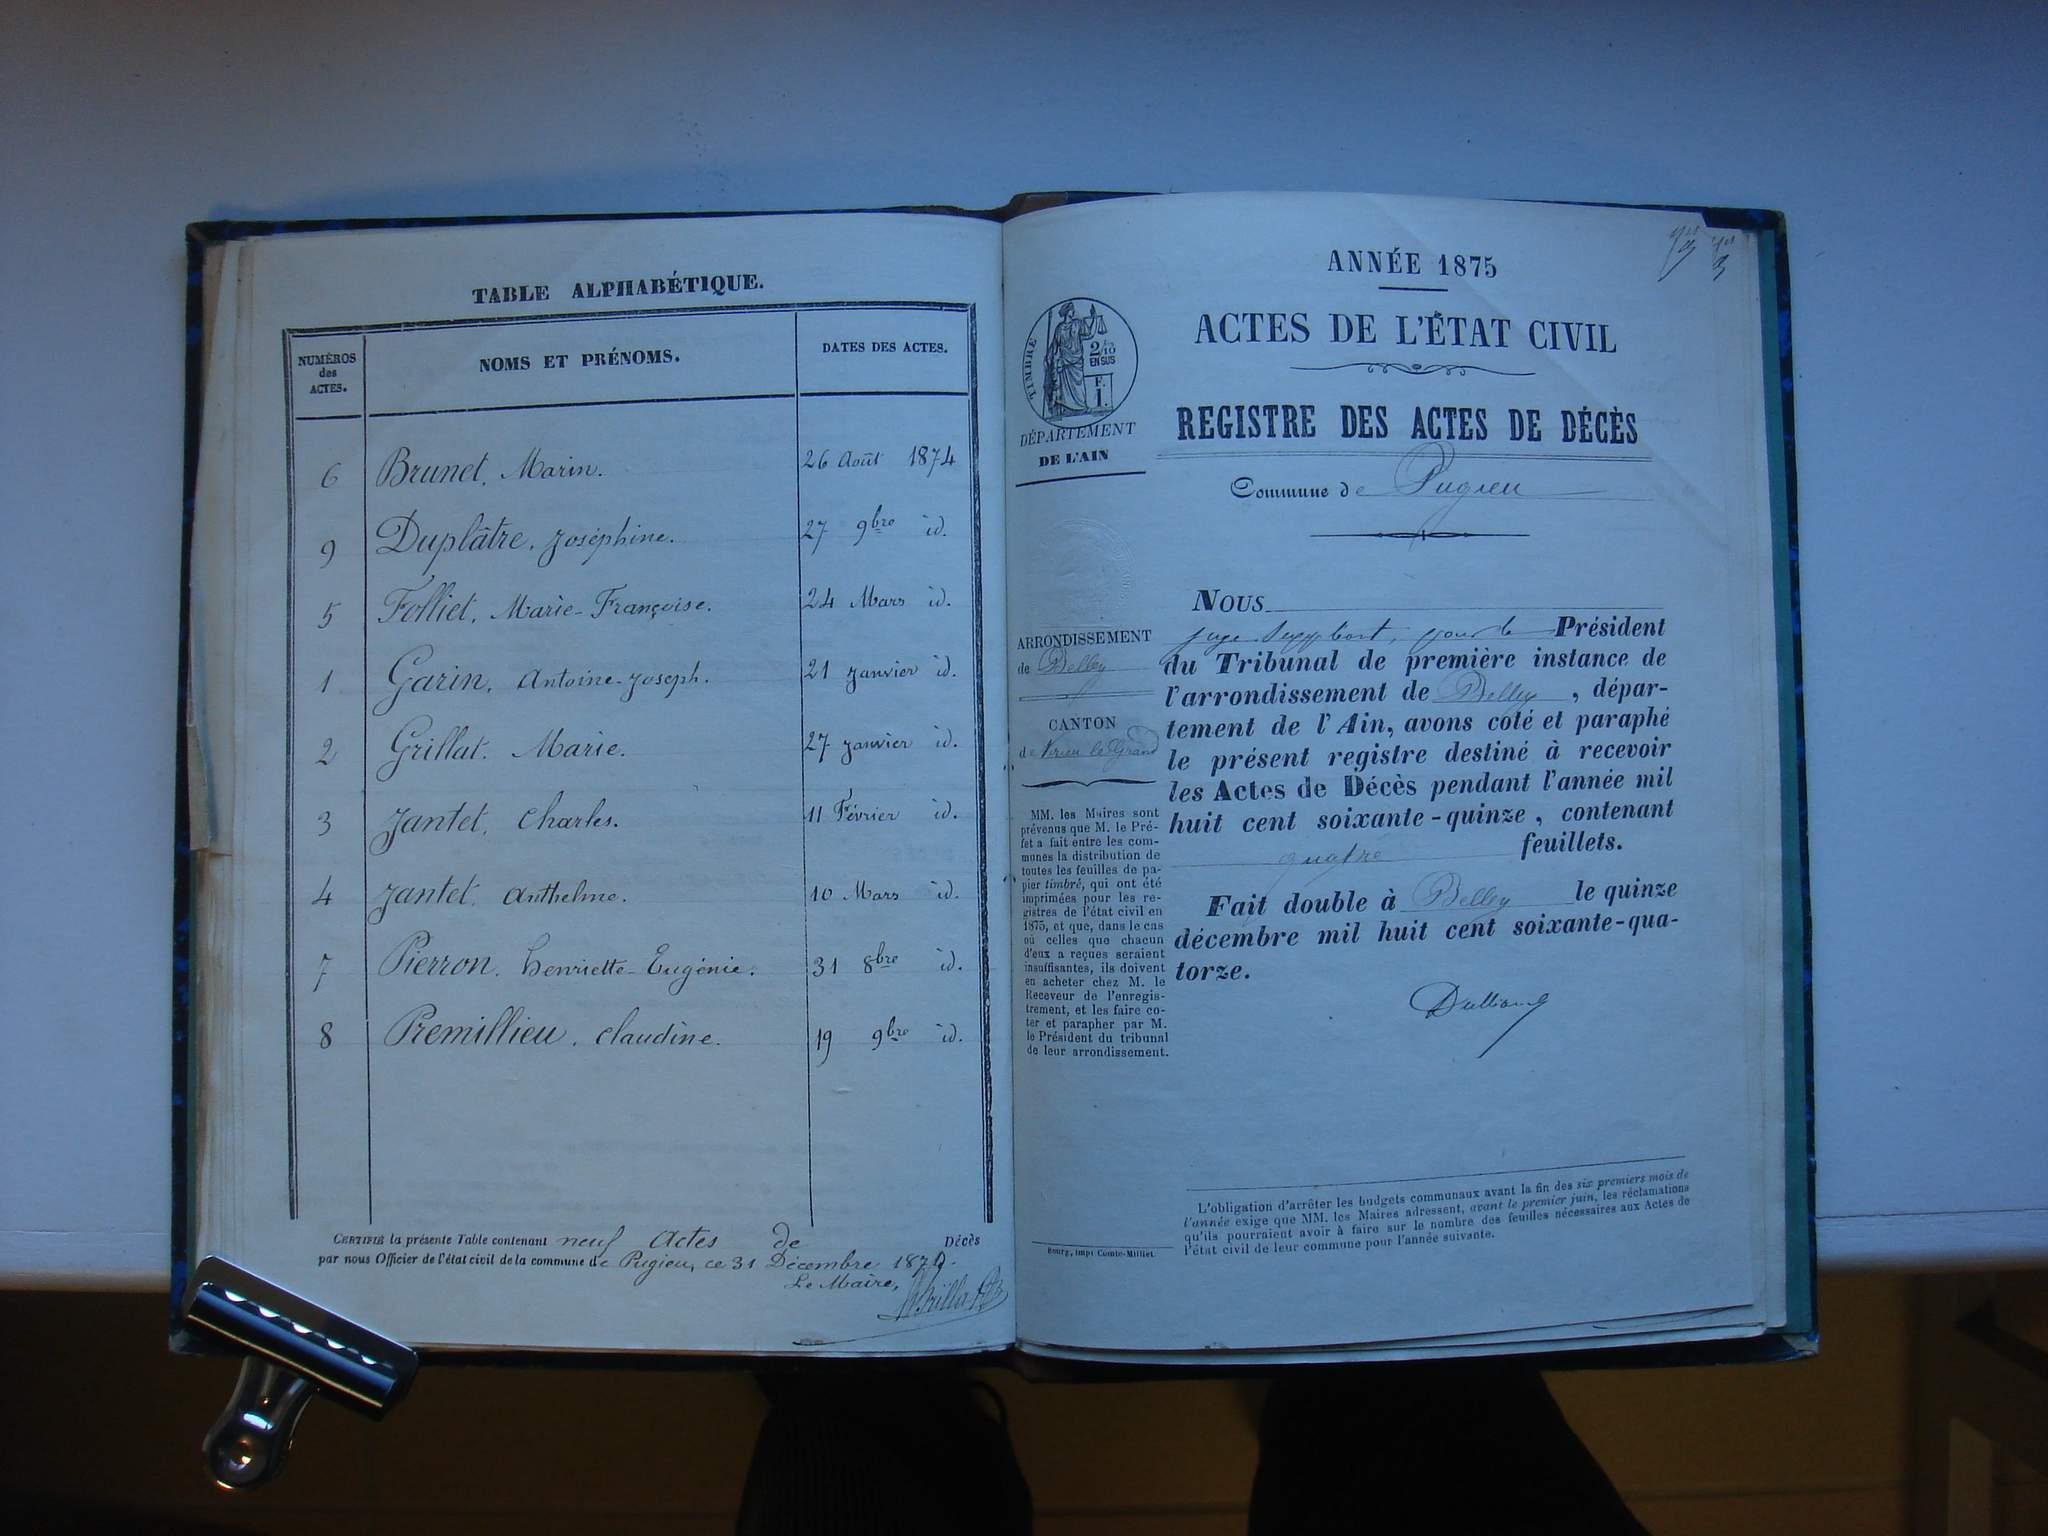 TABLE ALPHABÉTIQUE.
NUMÉROS des ACTES.
NOMS ET PRÉNOMS.
DATES DES ACTES.
6 Brunet, Marin. 26 Août 1874
9 Duplâtre, Joséphine. 27 9bre id.
5 Folliet, Marie-Françoise. 24 Mars id.
1 Garin, Antoine-Joseph. 21 Janvier id.
2 Grillat, Marie. 27 Janvier id.
3 Jantet, Charles. 11 Février id.
4 Jantet, Anthelme. 10 Mars id.
7 Pierron, Henriette-Eugénie. 31 8bre id.
8 Premillieu, Claudine. 19 9bre id.
CERTIFIÉ la présente Table contenant neuf Actes de Décès
par nous Officier de l'état civil de la commune de Pugieu, ce 31 Décembre 1874.
Le Maire,
ANNÉE 1875
ACTES DE L'ÉTAT CIVIL
REGISTRE DES ACTES DE DÉCÈS
Commune de Pugieu
TIMBRE
2/10
EN SUS
F.
1.
DÉPARTEMENT
DE L'AIN
ARRONDISSEMENT
de Belley
CANTON
de Virieu le Grand
MM. les Maires sont
prévenus que M. le Pré-
fet a fait entre les com-
munes la distribution de
toutes les feuilles de pa-
pier timbré, qui ont été
imprimées pour les re-
gistres de l'état civil en
1875, et que, dans le cas
où celles que chacun
d'eux a reçues seraient
insuffisantes, ils doivent
en acheter chez M. le
Receveur de l'enregis-
trement, et les faire co-
ter et parapher par M.
le Président du tribunal
de leur arrondissement.
Bourg, impr Comte-Milliet.
NOUS
juge suppléant, pour le Président
du Tribunal de première instance de
l'arrondissement de Belley, dépar-
tement de l'Ain, avons coté et paraphé
le présent registre destiné à recevoir
les Actes de Décès pendant l'année mil
huit cent soixante-quinze, contenant
quatre feuillets.
Fait double à Belley le quinze
décembre mil huit cent soixante-qua-
torze.
L'obligation d'arrêter les budgets communaux avant la fin des six premiers mois de
l'année exige que MM. les Maires adressent, avant le premier juin, les réclamations
qu'ils pourraient avoir à faire sur le nombre des feuilles nécessaires aux Actes de
l'état civil de leur commune pour l'année suivante.